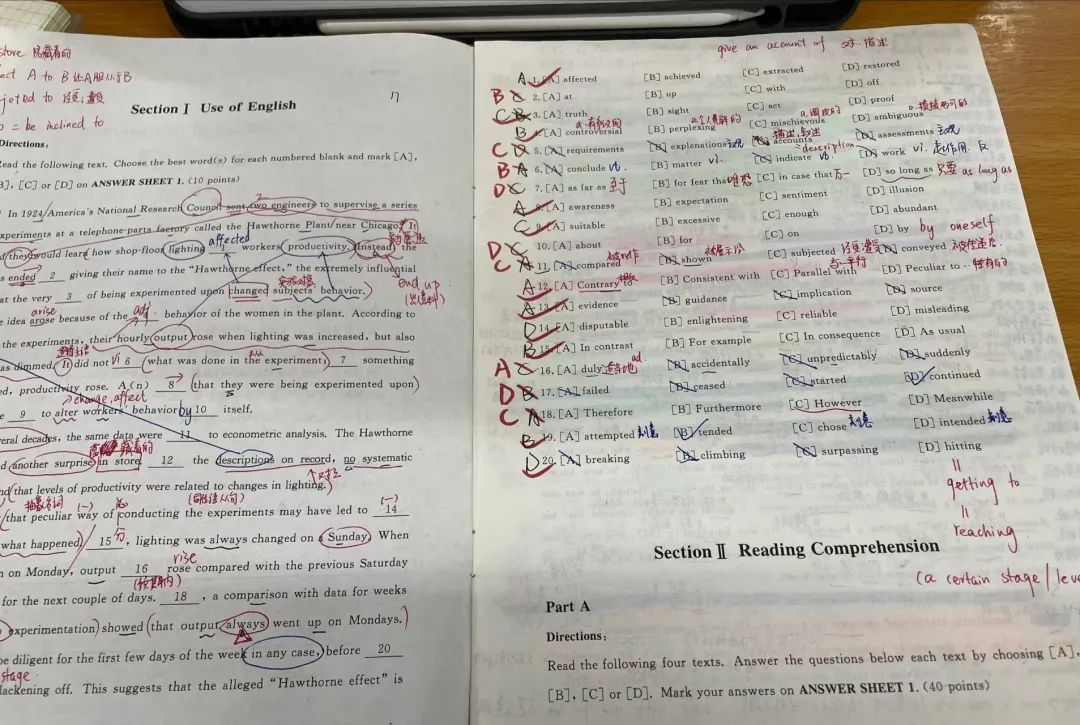 store 隐藏着的
ect A to B 让A服从于B
jeted to 经受,遭受
o = be inclined to
Section Ⅰ Use of English
17
Directions:
Read the following text. Choose the best word(s) for each numbered blank and mark [A],
B], [C] or [D] on ANSWER SHEET 1. (10 points)
In 1924 America's National Research Council sent two engineers to supervise a series
xperiments at a telephone-parts factory called the Hawthorne Plant near Chicago. It
they would learn how shop-floor lighting affected workers productivity. Instead, the
s ended 2 giving their name to the "Hawthorne effect," the extremely influential
end up
at the very 3 of being experimented upon changed subjects' behavior.
arise adj
e idea arose because of the behavior of the women in the plant. According to
the experiments, their hourly output rose when lighting was increased, but also
as dimmed. It did not vi 6 what was done in the experiment; 7 something
ed, productivity rose. A(n) 8 that they were being experimented upon
change, affect
e 9 to alter workers' behavior by 10 itself.
eral decades, the same data were 11 to econometric analysis. The Hawthorne
another surprise in store 12 the descriptions on record, no systematic
nd that levels of productivity were related to changes in lighting.
(同位语从句)
(一) (一)
that peculiar way of conducting the experiments may have led to 14
what happened. 15 , lighting was always changed on a Sunday. When
rise
n on Monday, output 16 rose compared with the previous Saturday
for the next couple of days. 18 , a comparison with data for weeks
experimentation) showed that output always went up on Mondays.
be diligent for the first few days of the week in any case, before 20
stage
lackening off. This suggests that the alleged "Hawthorne effect" is
give an account of 对…描述
A 1. [A] affected [B] achieved [C] extracted [D] restored
B 2. [A] at [B] up [C] with [D] off
C 3. [A] truth [B] sight [C] act [D] proof
B 4. [A] controversial [B] perplexing [C] mischievous [D] ambiguous
C 5. [A] requirements [B] explanations [C] accounts 描述,叙述 [D] assessments
description
B A 6. [A] conclude vt. [B] matter vi. [C] indicate vt. [D] work vi. 起作用
D C 7. [A] as far as 至于 [B] for fear that 唯恐 [C] in case that 万一 [D] so long as 只要 as long as
A 8. [A] awareness [B] expectation [C] sentiment [D] illusion
C 9. [A] suitable [B] excessive [C] enough [D] abundant
D C 10. [A] about [B] for [C] on [D] by by oneself
C A 11. [A] compared [B] shown [C] subjected 经受,遭受 [D] conveyed
A 12. [A] Contrary to [B] Consistent with [C] Parallel with 与…平行 [D] Peculiar to …特有的
A 13. [A] evidence [B] guidance [C] implication [D] source
D 14. [A] disputable [B] enlightening [C] reliable [D] misleading
B 15. [A] In contrast [B] For example [C] In consequence [D] As usual
A C 16. [A] duly 适当地 ad. [B] accidentally [C] unpredictably [D] suddenly
D B 17. [A] failed [B] ceased [C] started [D] continued
C A 18. [A] Therefore [B] Furthermore [C] However [D] Meanwhile
B 19. [A] attempted [B] tended [C] chose [D] intended
D 20. [A] breaking [B] climbing [C] surpassing [D] hitting
=
getting to
=
reaching
Section Ⅱ Reading Comprehension
(a certain stage / leve
Part A
Directions:
Read the following four texts. Answer the questions below each text by choosing [A],
[B], [C] or [D]. Mark your answers on ANSWER SHEET 1. (40 points)